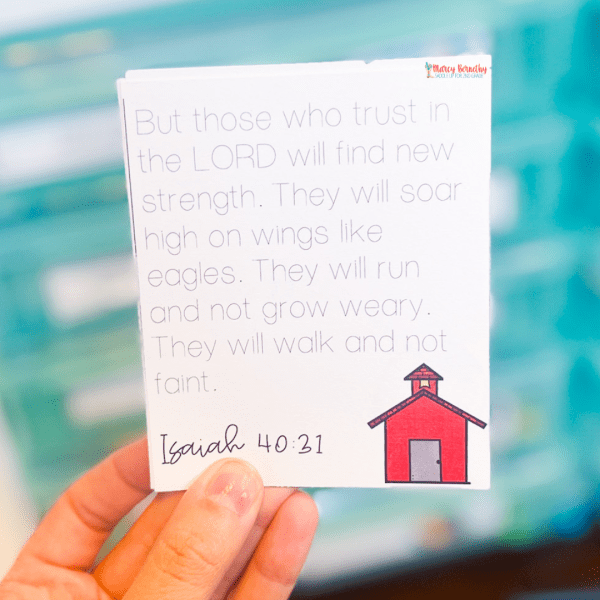 Marcy Bernethy
But those who trust in
the LORD will find new
strength. They will soar
high on wings like
eagles. They will run
and not grow weary.
They will walk and not
faint.
Isaiah 40:31